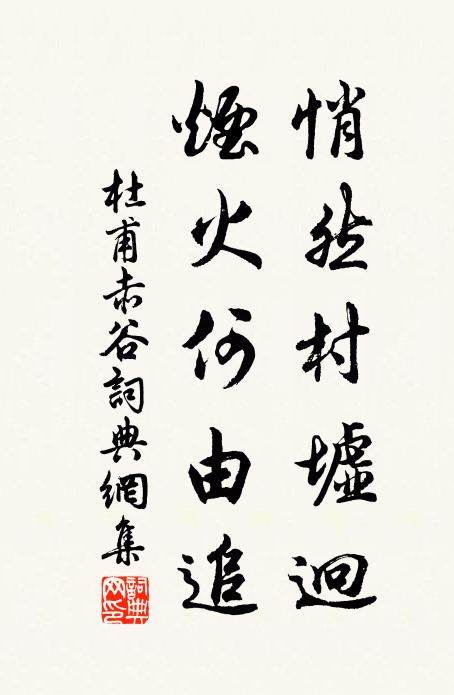 悄然村墟迥
煙火何由追
杜甫赤谷詞典網集
詞典網印